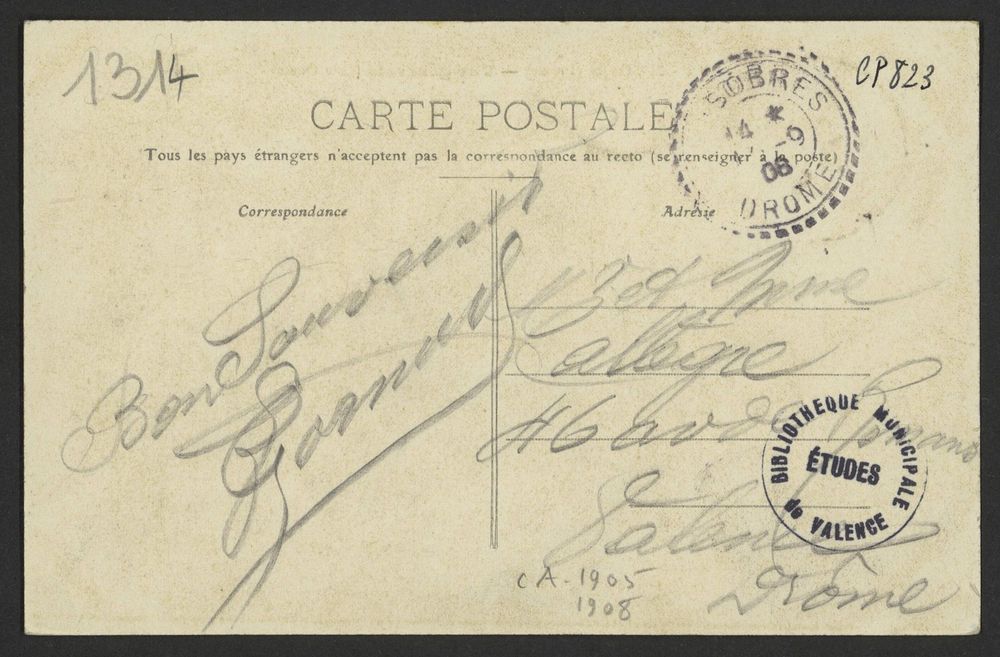 1314
CP823
CARTE POSTALE
Tous les pays étrangers n'acceptent pas la correspondance au recto (se renseigner à la poste)
SUBRES
14 * -9
08
DROME
Correspondance
Adresse
Bon Souvenir
Mme
Allègre
46 av de
Valence
Drôme
BIBLIOTHEQUE MUNICIPALE
ÉTUDES
de VALENCE
CA-1905
1908